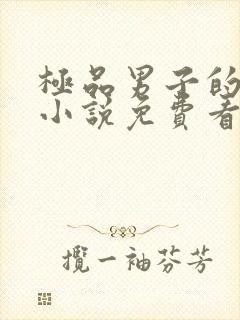 極品男子的
小說免費看
攬一袖芬芳